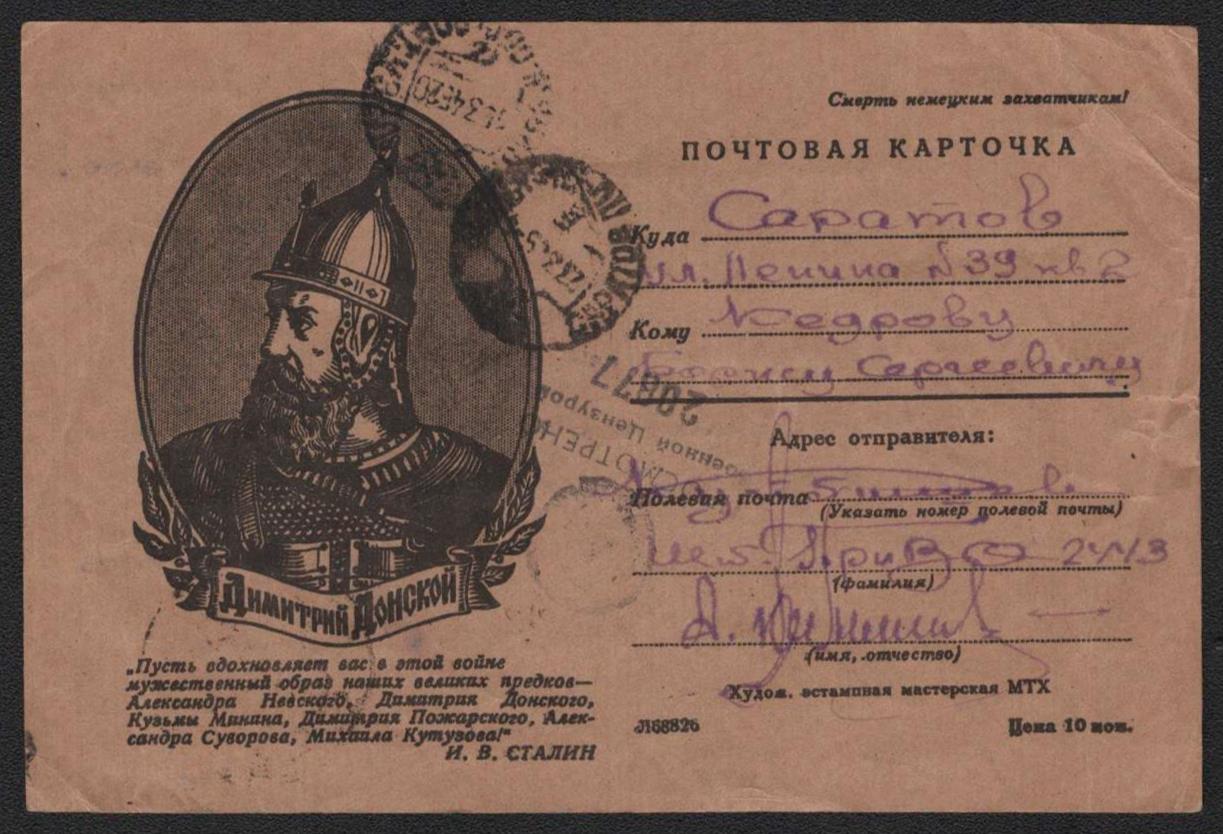 Смерть немецким захватчикам!
ПОЧТОВАЯ КАРТОЧКА
Куда Саратов
ул. Ленина №39 кв 2
Кому Кедрову
Борису Сергеевичу
20877
Военной Цензурой
Адрес отправителя:
Полевая почта
(Указать номер полевой почты)
Шт. ПриВО
(фамилия)
А.
(имя, отчество)
Худож. эстампная мастерская МТХ
Л68826 Цена 10 коп.
Димитрий Донской
„Пусть вдохновляет вас в этой войне
мужественный образ наших великих предков—
Александра Невского, Димитрия Донского,
Кузьмы Минина, Димитрия Пожарского, Алек-
сандра Суворова, Михаила Кутузова!"
И. В. СТАЛИН